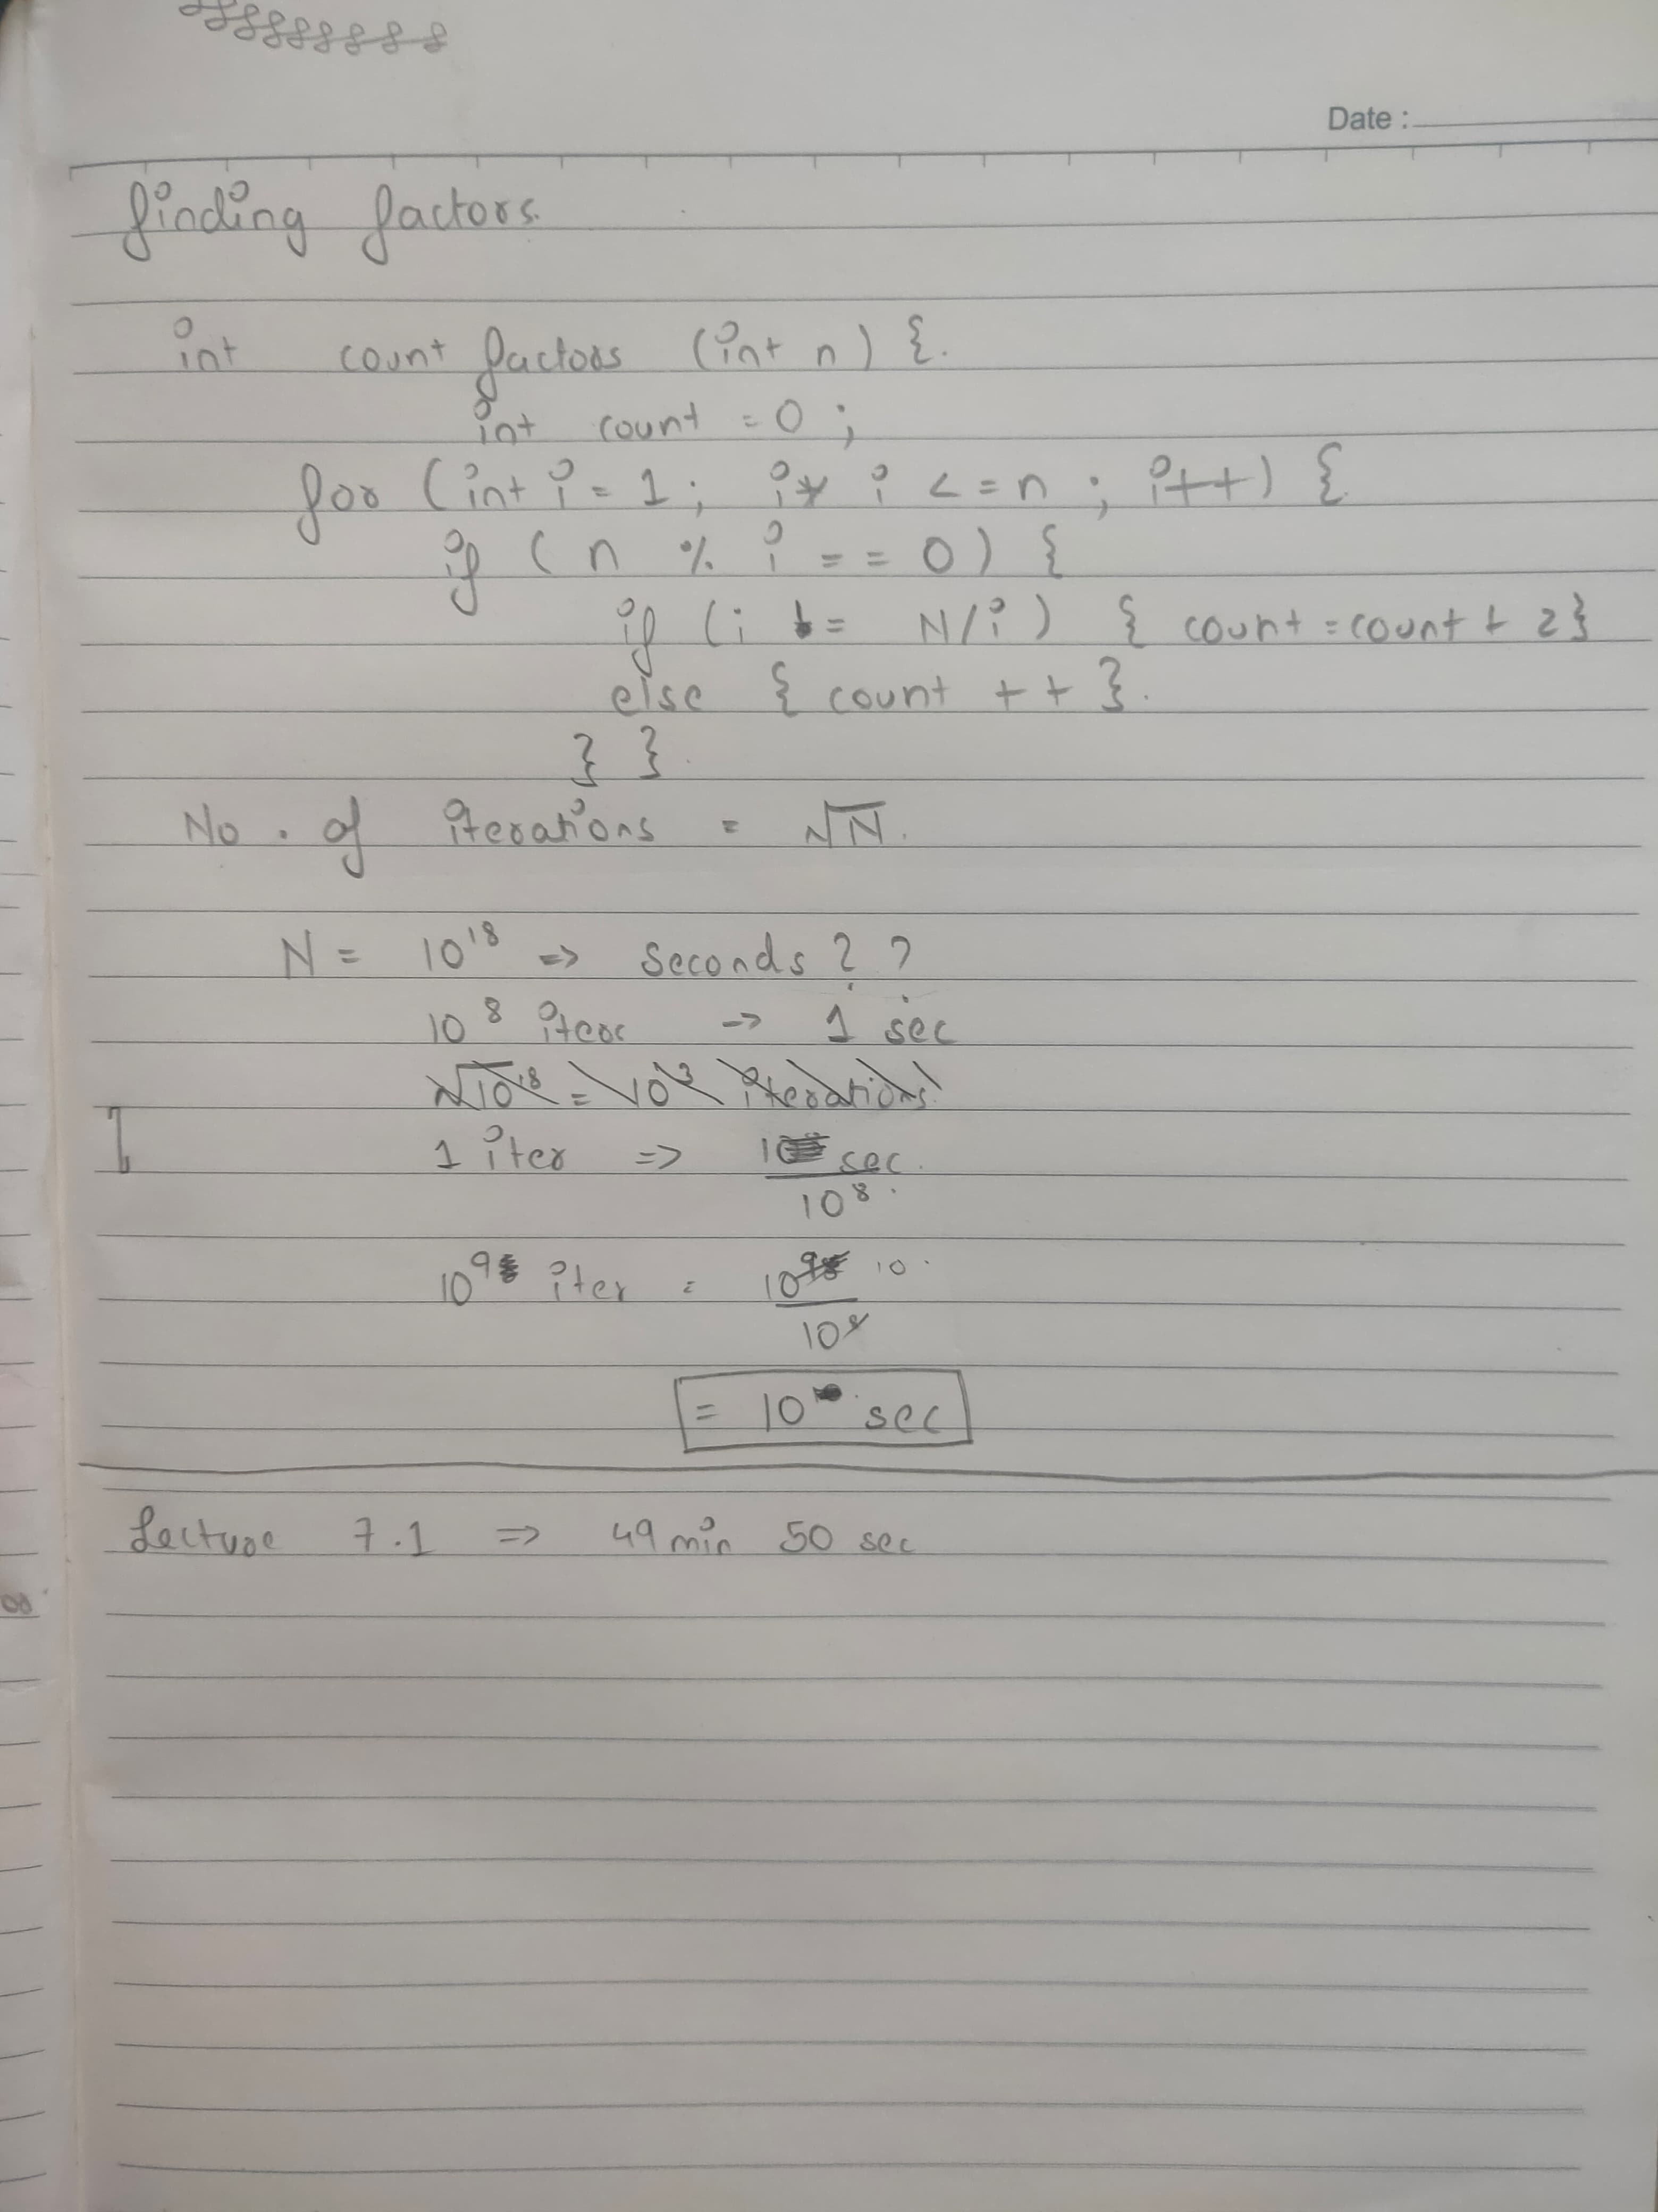 Date :
finding factors.
int count factors (int n) {.
int count = 0 ;
for (int i = 1; i * i <= n ; i++) {
if ( n % i == 0) {
if (i != N/i) { count = count + 2}
else { count ++ }.
} }.
No. of iterations = √N.
N = 10^18 => seconds ? ?
10^8 iter -> 1 sec
√10^18 = 10^3 iterations
1 iter => 1 sec.
10^8.
10^9 iter = 10^9 10.
10^8
= 10 sec
Lecture 7.1 => 49 min 50 sec